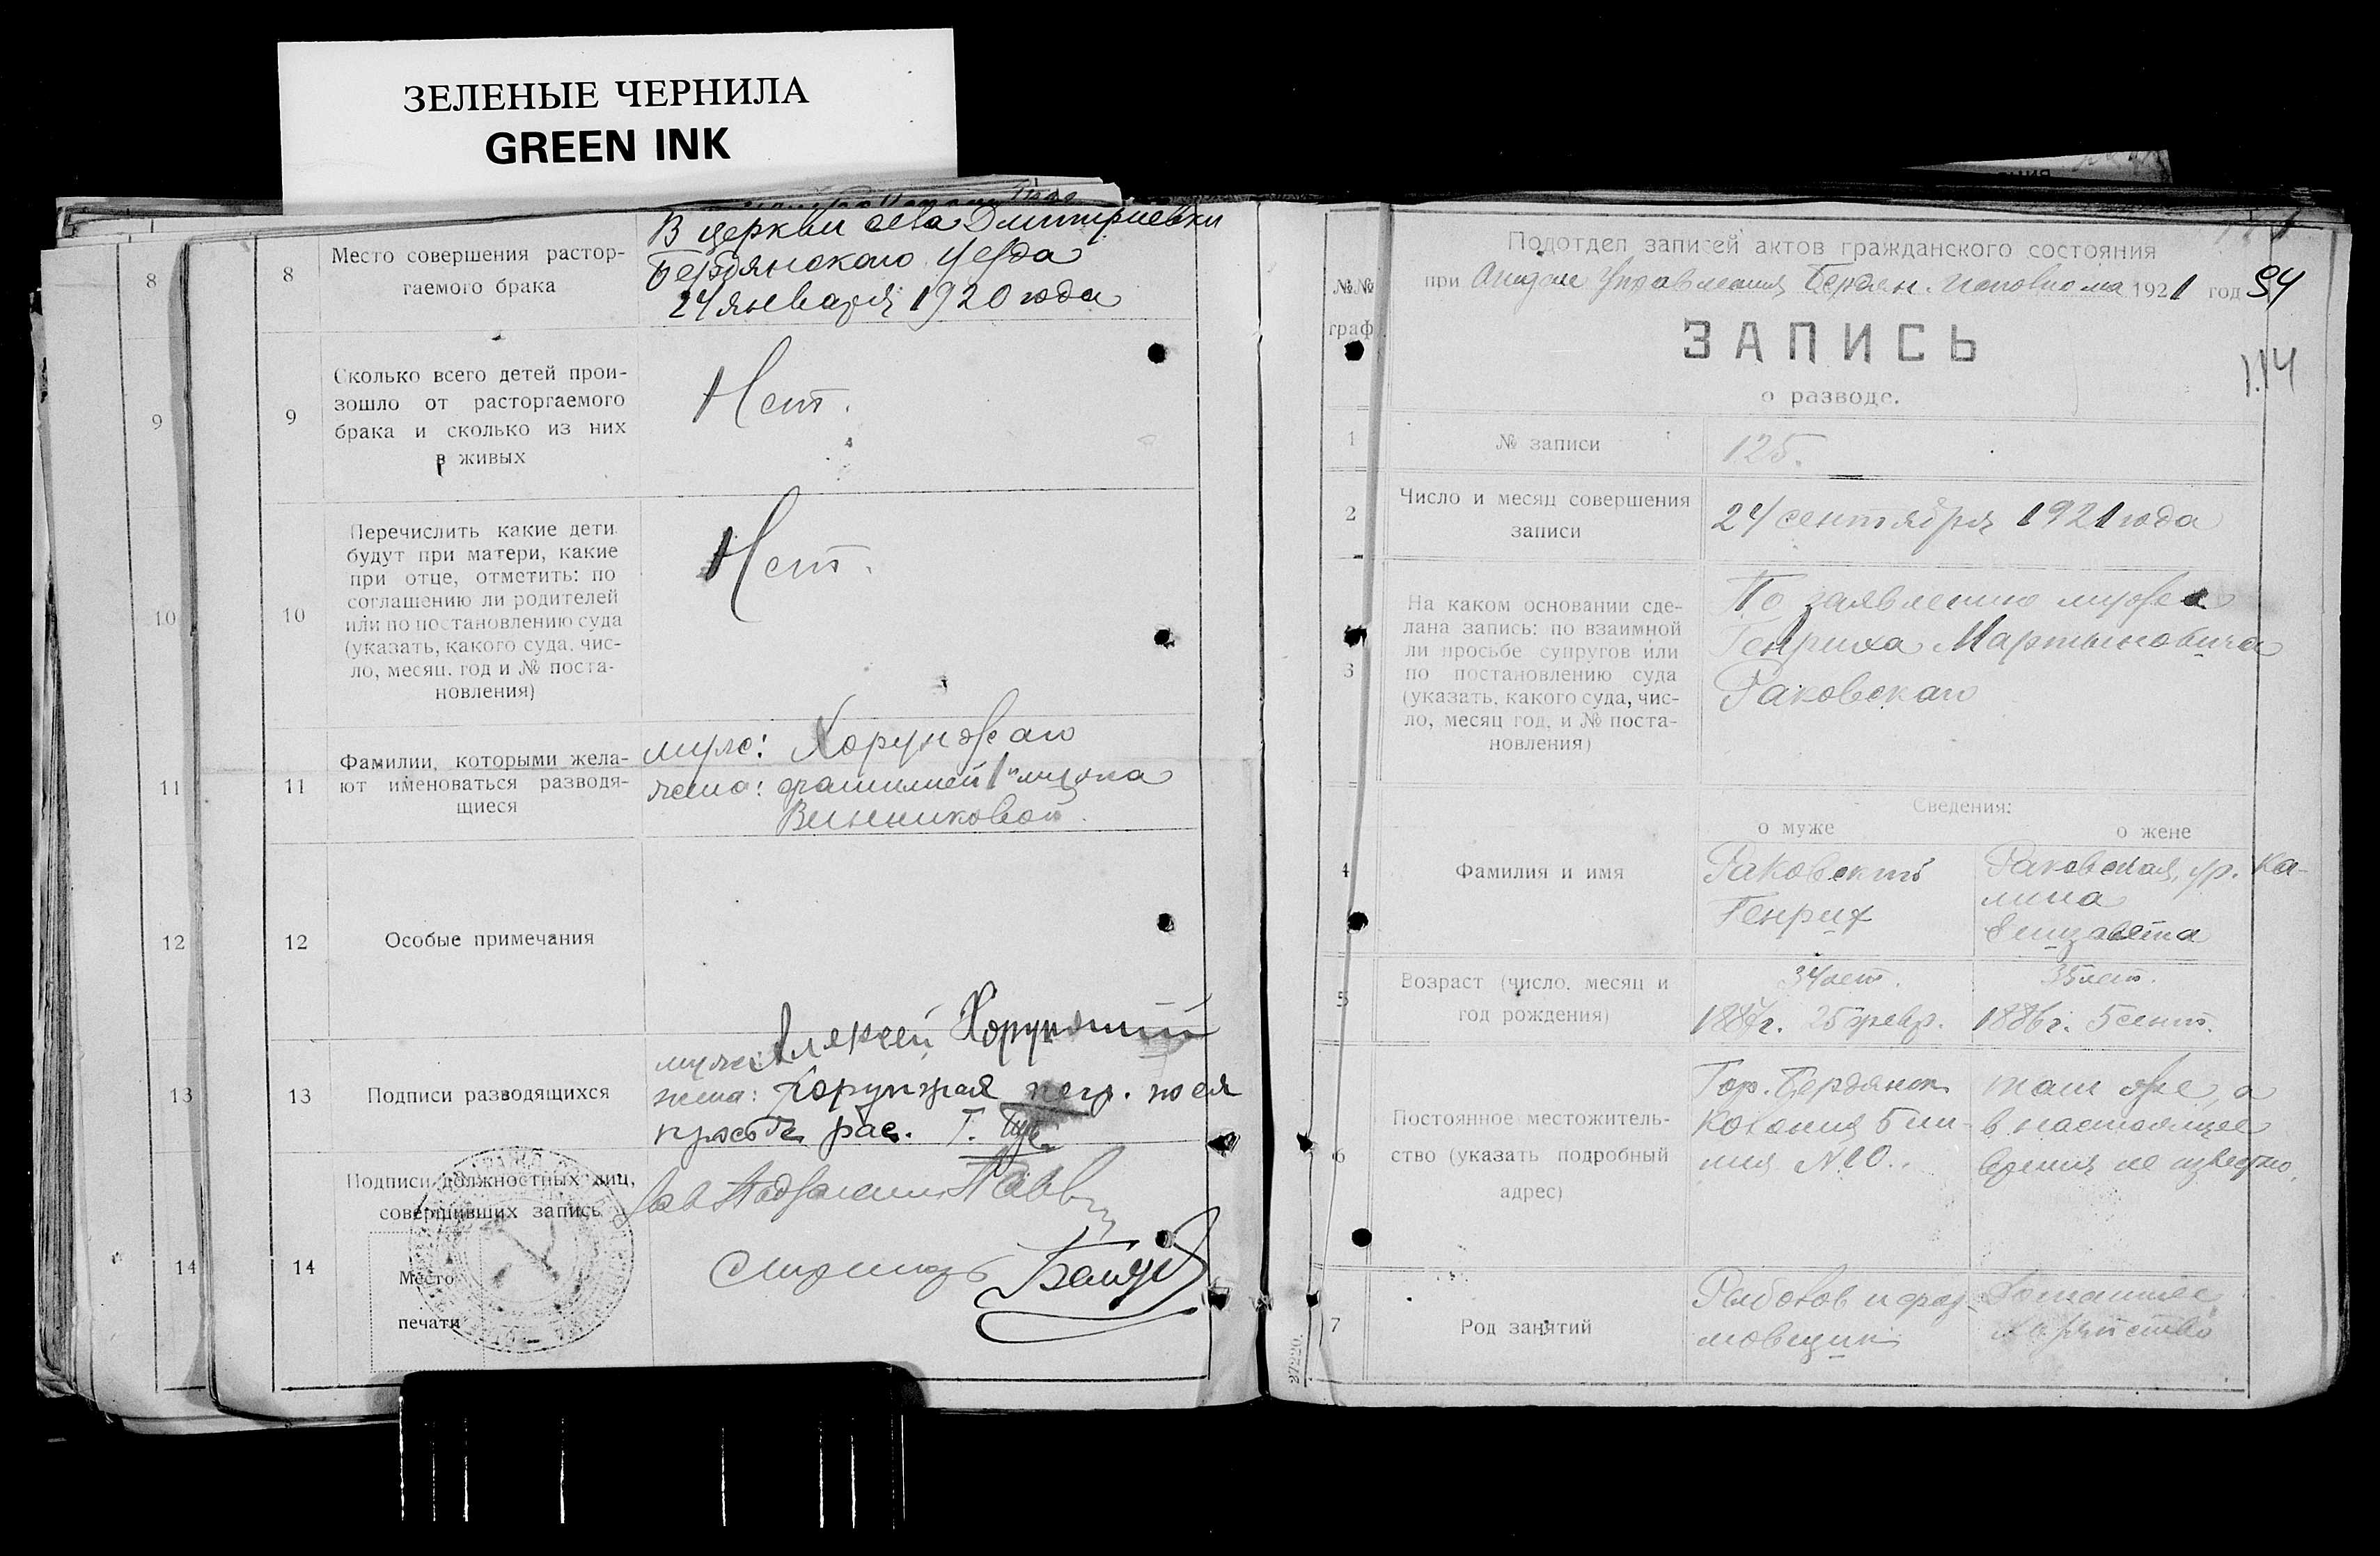 ЗЕЛЕНЫЕ ЧЕРНИЛА
GREEN INK
8
9
10
11
12
13
14
8
Место совершения растор-
гаемого брака
В церкви села Дмитриевки
Бердянского уезда
24 января 1920 года
9
Сколько всего детей прои-
зошло от расторгаемого
брака и сколько из них
в живых
Нет.
10
Перечислить какие дети
будут при матери, какие
при отце, отметить: по
соглашению ли родителей
или по постановлению суда
(указать, какого суда, чис-
ло, месяц, год и № поста-
новления)
Нет.
11
Фамилии, которыми жела-
ют именоваться разводя-
щиеся
муж: Хорунжаго
жена: фамилией 1го мужа
Винниковой.
12
Особые примечания
13
Подписи разводящихся
муж: Алексей Хорунжий
жена: Хорунжая негр. по ея
просьбе рас.
14
Подписи должностных лиц,
совершивших запись
Место
печати
№№
граф
Подотдел записей актов гражданского состояния
при Отделе Управления Бердян. Исполкома 1921 год 94
ЗАПИСЬ
о разводе.
114
1
№ записи
125.
2
Число и месяц совершения
записи
24 сентября 1921 года
3
На каком основании сде-
лана запись: по взаимной
ли просьбе супругов или
по постановлению суда
(указать, какого суда, чис-
ло, месяц год, и № поста-
новления)
По заявлению мужа
Генриха Мартыновича
Раковскаго
Сведения:
о муже
о жене
4
Фамилия и имя
Раковский
Генрих
Раковская, ур. Ка-
лина
Елизавета
5
Возраст (число, месяц и
год рождения)
34 лет.
1887г. 25 февр.
35 лет.
1886г. 5 сент.
6
Постоянное местожитель-
ство (указать подробный
адрес)
Гор. Бердянск
Колония 5 ли-
ния №10.
там же, а
в настоящее
время не известно.
7
Род занятий
Рыболов и
Домашнее
хозяйство
27220.